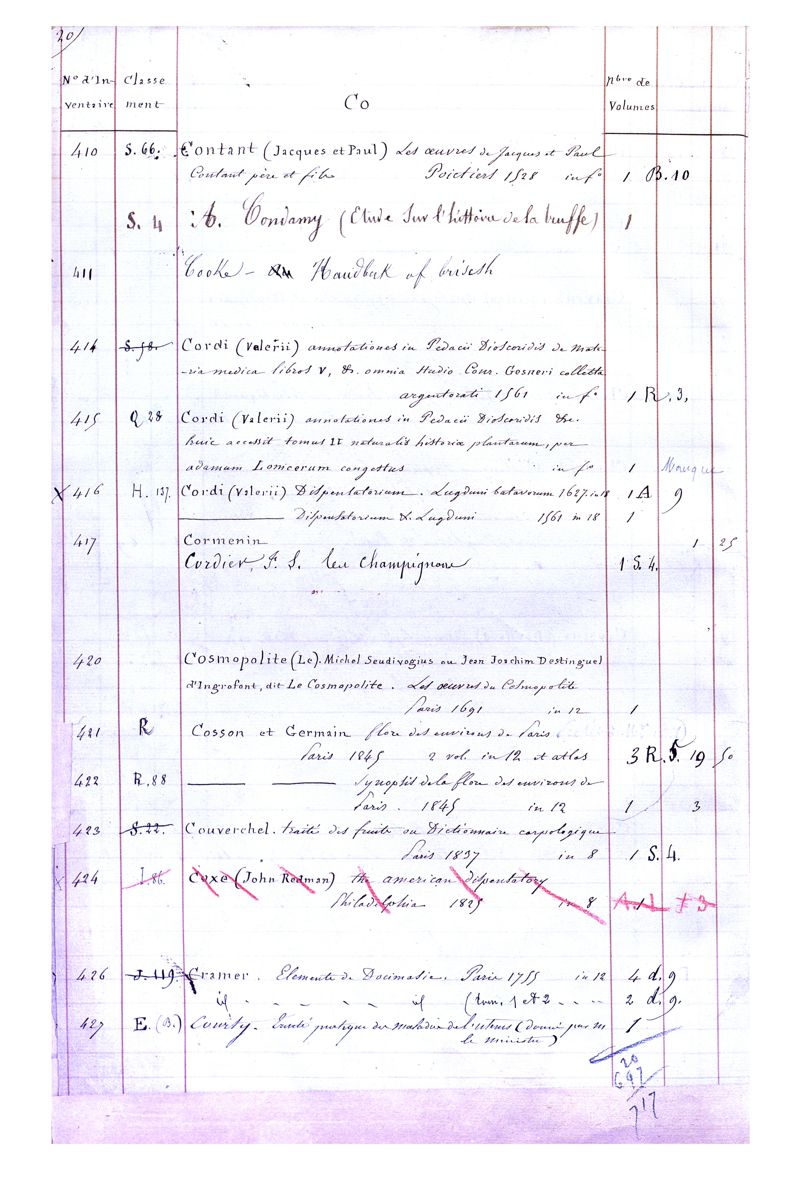 20
N° d'In-ventaire Classement Co nbre de Volumes
410 S. 66. Contant (Jacques et Paul) Les œuvres de Jacques et Paul
Contant père et fils Poictiers 1528 in f° 1 B. 10
S. 4 Condamy (Etude sur l'histoire de la truffe) 1
411 Cooke - Handbuk of british
414 S. 58. Cordi (Valerii) annotationes in Pedacii Dioscoridis de mate-
-ria medica libros V, &. omnia studio Conr. Gesneri collecta
argentorati 1561 in f° 1 R. 3,
415 Q 28 Cordi (Valerii) annotationes in Pedacii Dioscoridis &c.
huic accessit tomus II naturalis historiæ plantarum, per
adamum Lonicerum congestus in f° 1 Manque
X 416 H. 137. Cordi (Valerii) Dispensatorium. Lugduni batavorum 1627. in 18 1 A 9
Dispensatorium & Lugduni 1561 in 18 1
417 Cormenin 1 25
Cordier, F. S. les Champignons 1 S. 4.
420 Cosmopolite (Le). Michel Seudivogius ou Jean Joachim Destinguel
d'Ingrofont, dit Le Cosmopolite. Les œuvres du Cosmopolite
Paris 1691 in 12 1
421 R Cosson et Germain flore des environs de Paris
Paris 1845 2 vol. in 12 et atlas 3 R. 5. 19 50
422 R. 88 Synopsis de la flore des environs de
Paris. 1845 in 12 1 3
423 S. 22. Couverchel. traité des fruits ou Dictionnaire carpologique
Paris 1837 in 8 1 S. 4.
X 424 I. 86. Coxe (John Redman) the american dispensatory
Philadelphia 1825 in 8 1
426 J. 119. Cramer. Elements de Docimasie. Paris 1755 in 12 4 d. 9
id - - - - id (Tom. 1 et 2 - - - 2 d. 9.
427 E. (B.) Courty. Traité pratique des maladies de l'uterus (donné par m
le ministre) 1
20
697
717